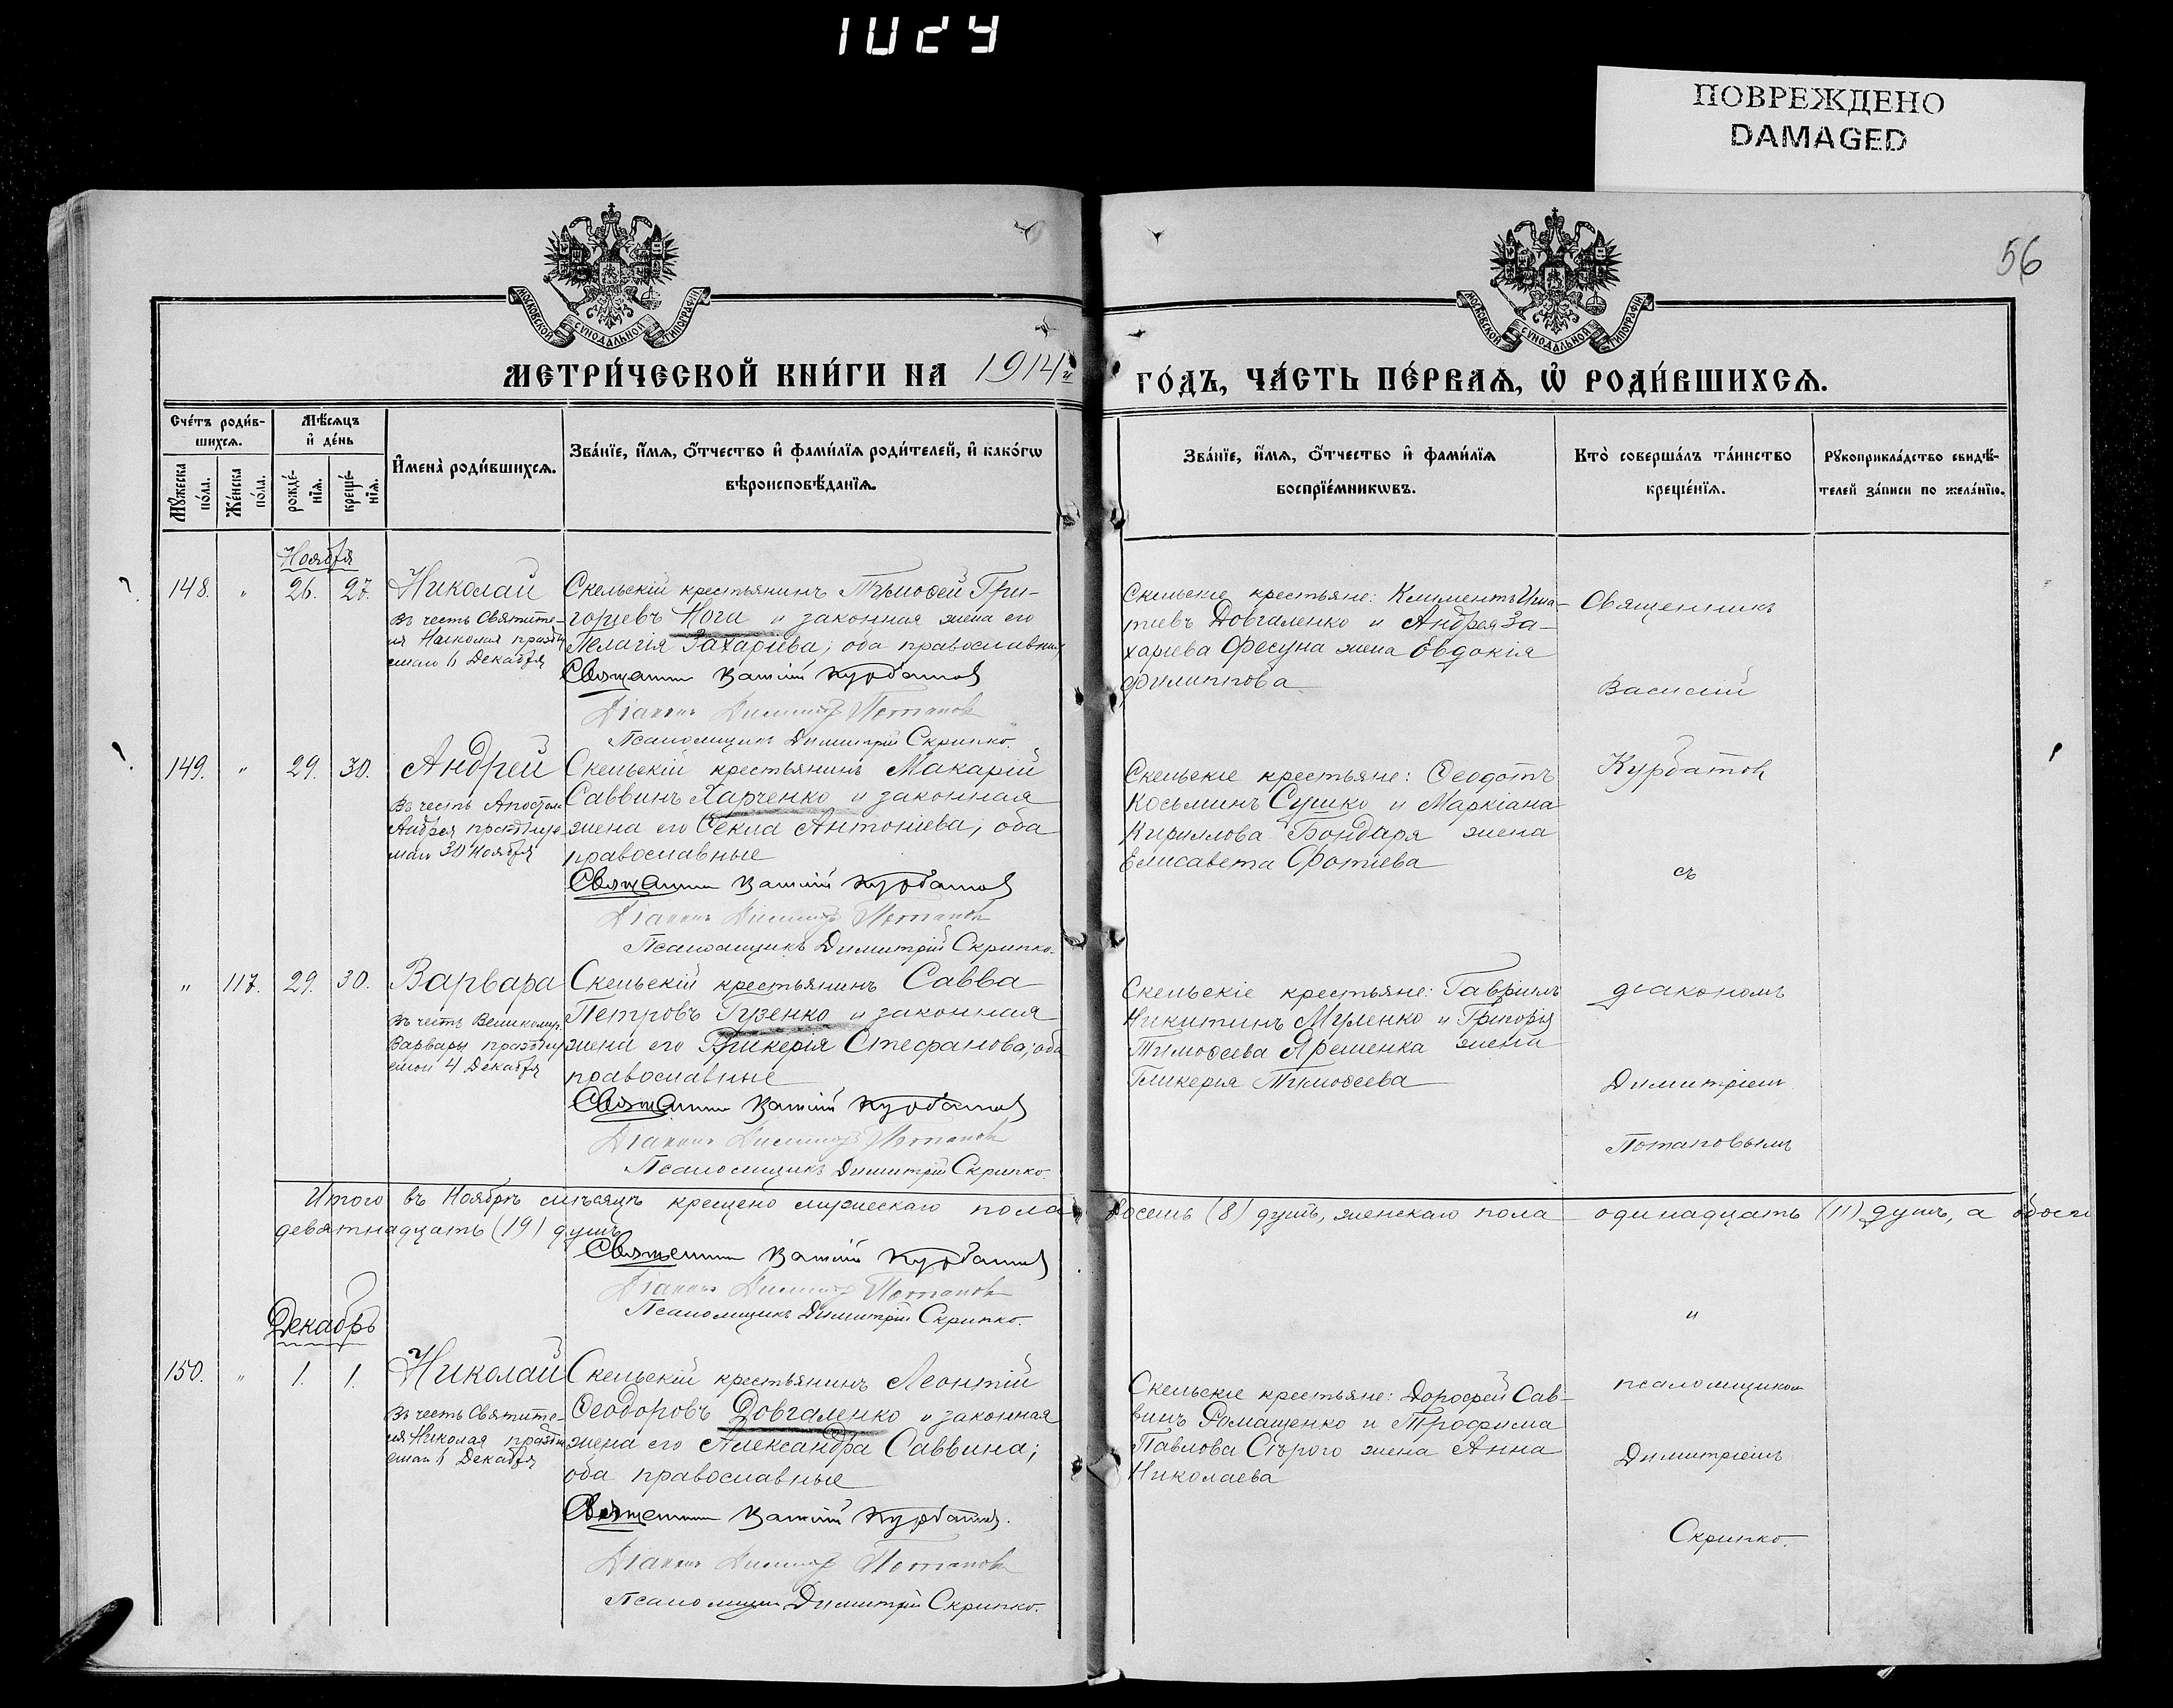 1029
ПОВРЕЖДЕНО
DAMAGED
56
МОСКОВСКОЙ СѴНОДАЛЬНОЙ ТИПОГРАФІИ
МОСКОВСКОЙ СѴНОДАЛЬНОЙ ТИПОГРАФІИ
МЕТРИ́ЧЕСКОЙ КНИ́ГИ НА 1914й
ГО́ДЪ, ЧА́СТЬ ПЕ́РВАѦ, Ѡ҆ РОДИ́ВШИХСѦ.
Сче́тъ роди́в-
шихсѧ.
Мѣ́сѧцъ
и҆ де́нь
Мꙋ́жеска
по́ла.
Же́нска
по́ла.
рожде́-
нїѧ.
креще́-
нїѧ.
И҆мена̀ роди́вшихсѧ.
Зва́нїе, и҆́мѧ, ѻ҆́тчество и҆ фами́лїѧ роди́телей, и҆ како́гѡ
вѣроисповѣ́данїѧ.
Зва́нїе, и҆́мѧ, ѻ҆́тчество и҆ фами́лїѧ
воспрїе́мникѡвъ.
Кто̀ соверша́лъ та́инство
креще́нїѧ.
Рꙋкоприкла́дство свидѣ́-
телей за́писи по жела́нїю.
Ноября
148. " 26. 27. Николай
Въ честь Святите-
ля Николая праздну
емаго 6 Декабря
Скельскій крестьянинъ Тимоѳей Гри-
горіевъ Нога и законная жена его
Пелагія Захаріева; оба православные
Священникъ Василій Курбатов
Діаконъ Димитрій Потапов
Псаломщикъ Димитрій Скрипко.
Скельскіе крестьяне: Климентъ Игна-
тіевъ Довгаленко и Андрея За-
харіева Фесуна жена Евдокія
Филиппова
Священникъ
Василій
149. " 29. 30. Андрей
Въ честь Апостола
Андрея празднуе-
маго 30 Ноября
Скельскій крестьянинъ Макарій
Саввинъ Харченко и законная
жена его Ѳекла Антоніева; оба
православные
Священникъ Василій Курбатов
Діаконъ Димитрій Потапов
Псаломщикъ Димитрій Скрипко.
Скельскіе крестьяне: Ѳеодотъ
Косьминъ Сушко и Маркіана
Кириллова Бондаря жена
Елисавета Фотіева
Курбатов
съ
" 117. 29. 30. Варвара
Въ честь Великомуч.
Варвары празднy
емой 4 Декабря
Скельскій крестьянинъ Савва
Петровъ Гузенко и законная
жена его Гликерія Стефанова; оба
православные
Священникъ Василій Курбатов
Діаконъ Димитрій Потапов
Псаломщикъ Димитрій Скрипко.
Скельскіе крестьяне: Гавріилъ
Никитинъ Муленко и Григорія
Тимоѳеева Яременка жена
Гликерія Тимоѳеева
діакономъ
Димитріемъ
Потаповымъ
Итого въ Ноябрѣ мѣсяцѣ крещено мужескаго пола восемь (8) душъ, женскаго пола одинадцать (11) душъ, а обоего
девятнадцать (19) душъ
Священникъ Василій Курбатов
Діаконъ Димитрій Потапов
Псаломщикъ Димитрій Скрипко.
"
Декабрь
150. " 1. 1. Николай
Въ честь Святите-
ля Николая праздну
емаго 6 Декабря
Скельскій крестьянинъ Леонтій
Ѳеодоровъ Довгаленко и законная
жена его Александра Саввина;
оба православные
Священникъ Василій Курбатов.
Діаконъ Димитрій Потапов
Псаломщикъ Димитрій Скрипко.
Скельскіе крестьяне: Дорофей Сав-
винъ Ромащенко и Трофима
Павлова Сѣрого жена Анна
Николаева
псаломщиком
Димитріемъ
Скрипко.